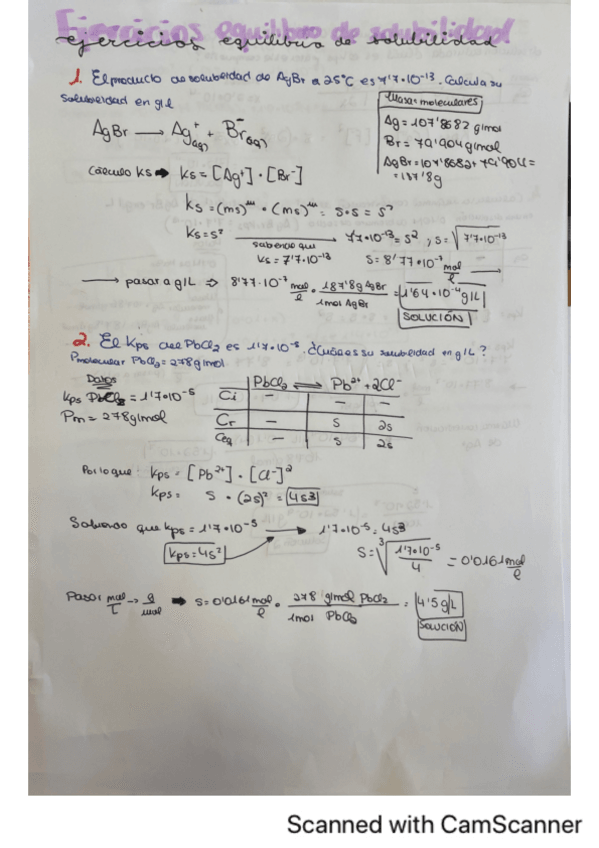 Ejercicios equilibrio de solubilidad
ejercicios equilibrio de solubilidad
1. El producto de solubilidad de AgBr a 25°C es 7'7·10⁻¹³. Calcula su
solubilidad en g/L
Masas moleculares
Ag = 107'8682 g/mol
Br = 79'904 g/mol
AgBr = 107'8682 + 79'904 =
= 187'8g
AgBr → Ag⁺(aq) + Br⁻(aq)
Calculo Ks → Ks = [Ag⁺]·[Br⁻]
Ks = (ms)ᵐ · (ms)ᵐ = s·s = s²
Ks = s² sabiendo que Ks = 7'7·10⁻¹³ → 7'7·10⁻¹³ = s² ; s = √7'7·10⁻¹³
s = 8'77·10⁻⁷ mol/l
→ pasar a g/L ⇒ 8'77·10⁻⁷ mol/l · 187'8g AgBr / 1mol AgBr = 1'64·10⁻⁴ g/L
SOLUCIÓN
2. El Kps del PbCl₂ es 1'7·10⁻⁵. ¿Cuál es su solubilidad en g/L?
Pmolecular PbCl₂ = 278 g/mol
Datos
Kps PbCl₂ = 1'7·10⁻⁵
Pm = 278 g/mol
PbCl₂ ⇌ Pb²⁺ + 2Cl⁻
Ci — — —
Cr — s 2s
Ceq — s 2s
Por lo que: Kps = [Pb²⁺]·[Cl⁻]²
Kps = s · (2s)² = 4s³
Sabiendo que Kps = 1'7·10⁻⁵ → 1'7·10⁻⁵ = 4s³
Kps = 4s²
s = ³√1'7·10⁻⁵/4 = 0'0161 mol/l
Pasar mol/L → g/mol ⇒ s = 0'0161 mol/l · 278 g/mol PbCl₂ / 1mol PbCl₂ = 4'5 g/L
SOLUCIÓN
Scanned with CamScanner